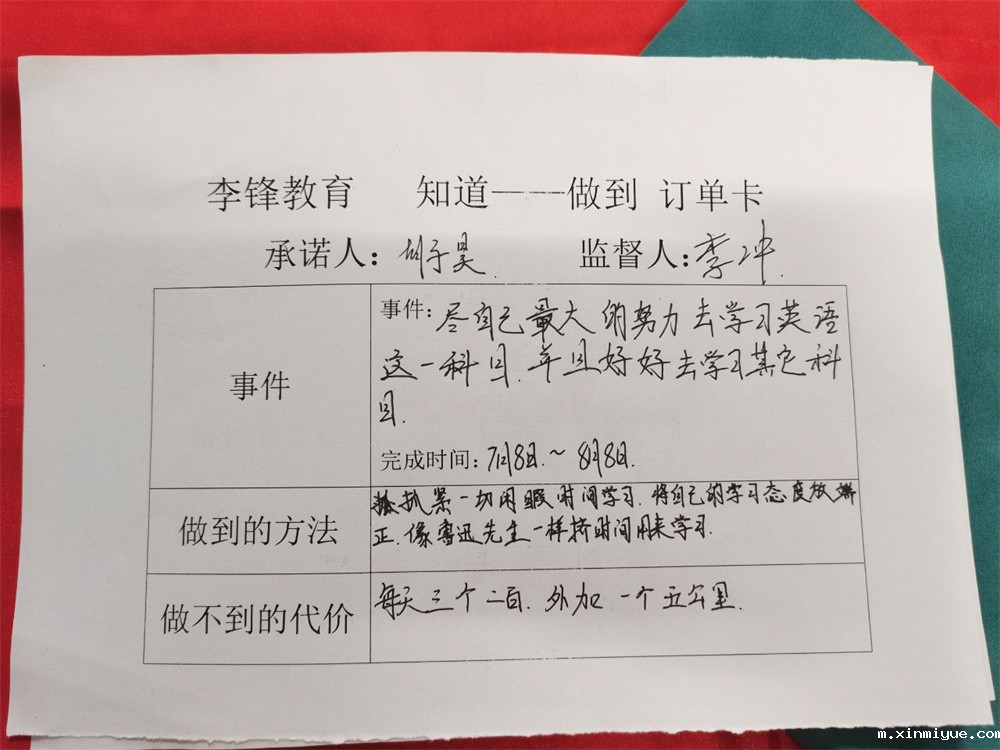 李锋教育 知道——做到 订单卡
承诺人：胡子昊. 监督人：李冲.
事件
事件：尽自己最大的努力去学习英语
这一科目.并且好好去学习其它科
目.
完成时间：7月8日.~8月8日.
做到的方法
抓紧一切闲暇时间学习.将自己的学习态度放端
正.像鲁迅先生一样挤时间用来学习.
做不到的代价
每天三个二百.外加一个五公里.
m.xinmiyue.com